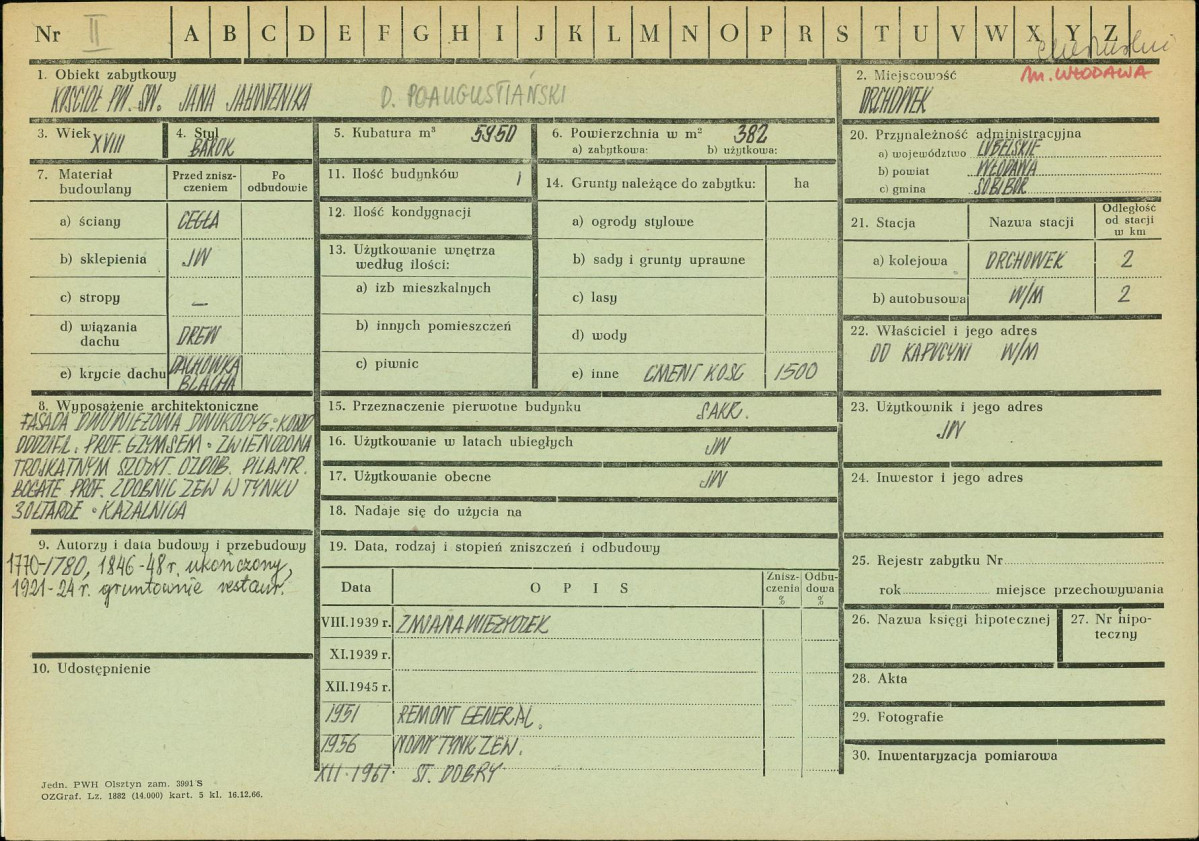 Nr II A B C D E F G H I J K L M N O P R S T U V W X Y Z
1. Obiekt zabytkowy
KOŚCIÓŁ PW. ŚW. JANA JAŁMUŻNIKA D. POAUGUSTIAŃSKI
2. Miejscowość
m. WŁODAWA
ORCHÓWEK
3. Wiek
XVIII
4. Styl
BAROK
5. Kubatura m³ 5950
6. Powierzchnia w m² 382
a) zabytkowa: b) użytkowa:
7. Materiał budowlany
Przed zniszczeniem
Po odbudowie
a) ściany CEGŁA
b) sklepienia JW
c) stropy —
d) wiązania dachu DREW
e) krycie dachu DACHÓWKA BLACHA
8. Wyposażenie architektoniczne
FASADA DWUWIEŻOWA DWUKODYG. KOND
ODDZIEL. PROF. GZYMSEM. ZWIEŃCZONA
TRÓJKĄTNYM SZCZYT. OZDOB. PILASTR.
BOGATE PROF. ZDOBNIC ZEW W TYNKU
3 OŁTARZE. KAZALNICA
9. Autorzy i data budowy i przebudowy
1770-1780, 1846-48 r. ukończony,
1921-24 r. gruntownie restaur.
10. Udostępnienie
11. Ilość budynków 1
12. Ilość kondygnacji
13. Użytkowanie wnętrza według ilości:
a) izb mieszkalnych
b) innych pomieszczeń
c) piwnic
14. Grunty należące do zabytku: ha
a) ogrody stylowe
b) sady i grunty uprawne
c) lasy
d) wody
e) inne CMENT KOŚC 1500
15. Przeznaczenie pierwotne budynku SAKR.
16. Użytkowanie w latach ubiegłych JW
17. Użytkowanie obecne JW
18. Nadaje się do użycia na
19. Data, rodzaj i stopień zniszczeń i odbudowy
Data OPIS Zniszczenia % Odbudowa %
VIII.1939 r. ZMIANA WIEŻYCZEK
XI.1939 r.
XII.1945 r.
1951 REMONT GENERAL.
1956 NOWY TYNK ZEW.
XII.1967. ST. DOBRY
20. Przynależność administracyjna
a) województwo LUBELSKIE
b) powiat WŁODAWA
c) gmina SOBIBÓR
21. Stacja Nazwa stacji Odległość od stacji w km
a) kolejowa ORCHÓWEK 2
b) autobusowa W/M 2
22. Właściciel i jego adres
OO KAPUCYNI W/M
23. Użytkownik i jego adres
JW
24. Inwestor i jego adres
25. Rejestr zabytku Nr
rok miejsce przechowywania
26. Nazwa księgi hipotecznej
27. Nr hipoteczny
28. Akta
29. Fotografie
30. Inwentaryzacja pomiarowa
Jedn. PWH Olsztyn zam. 3991 S
OZGraf. Lz. 1882 (14.000) kart. 5 kl. 16.12.66.